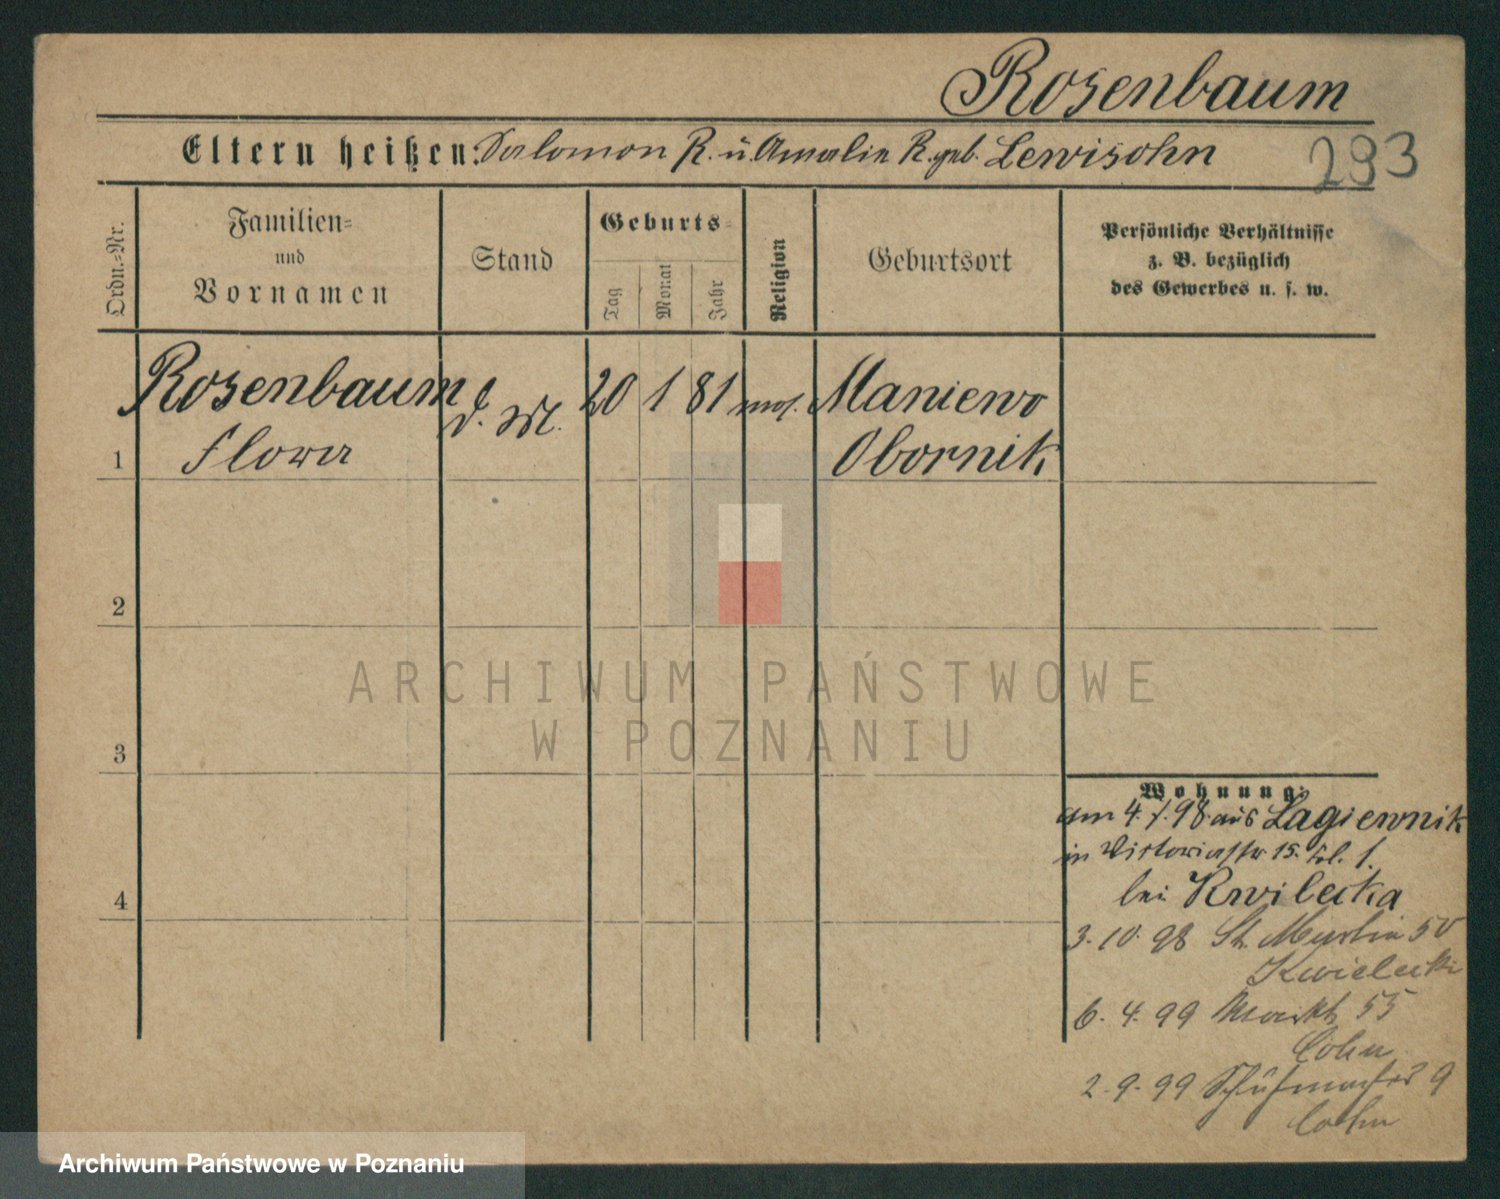 Rosenbaum
Eltern heißen: Salomon R. u. Amalie R. geb. Lewisohn
293
Ordn.-Nr.
Familien- und Vornamen
Stand
Geburts-
Tag
Monat
Jahr
Religion
Geburtsort
Persönliche Verhältnisse
z. B. bezüglich
des Gewerbes u. s. w.
Rosenbaum d. M. 20 1 81 mos. Maniewo
1 Flora Obornik
2
ARCHIWUM PAŃSTWOWE
W POZNANIU
3
Wohnung:
am 4. 98 aus Lagiewnik
in Victoriastr 15. 1.
bei Kwilecka
3. 10. 98 St. Martin 50
Kwilecki
6. 4. 99 Markt 55
Cohn
2. 9. 99 Schuhmacher 9
Cohn
4
Archiwum Państwowe w Poznaniu